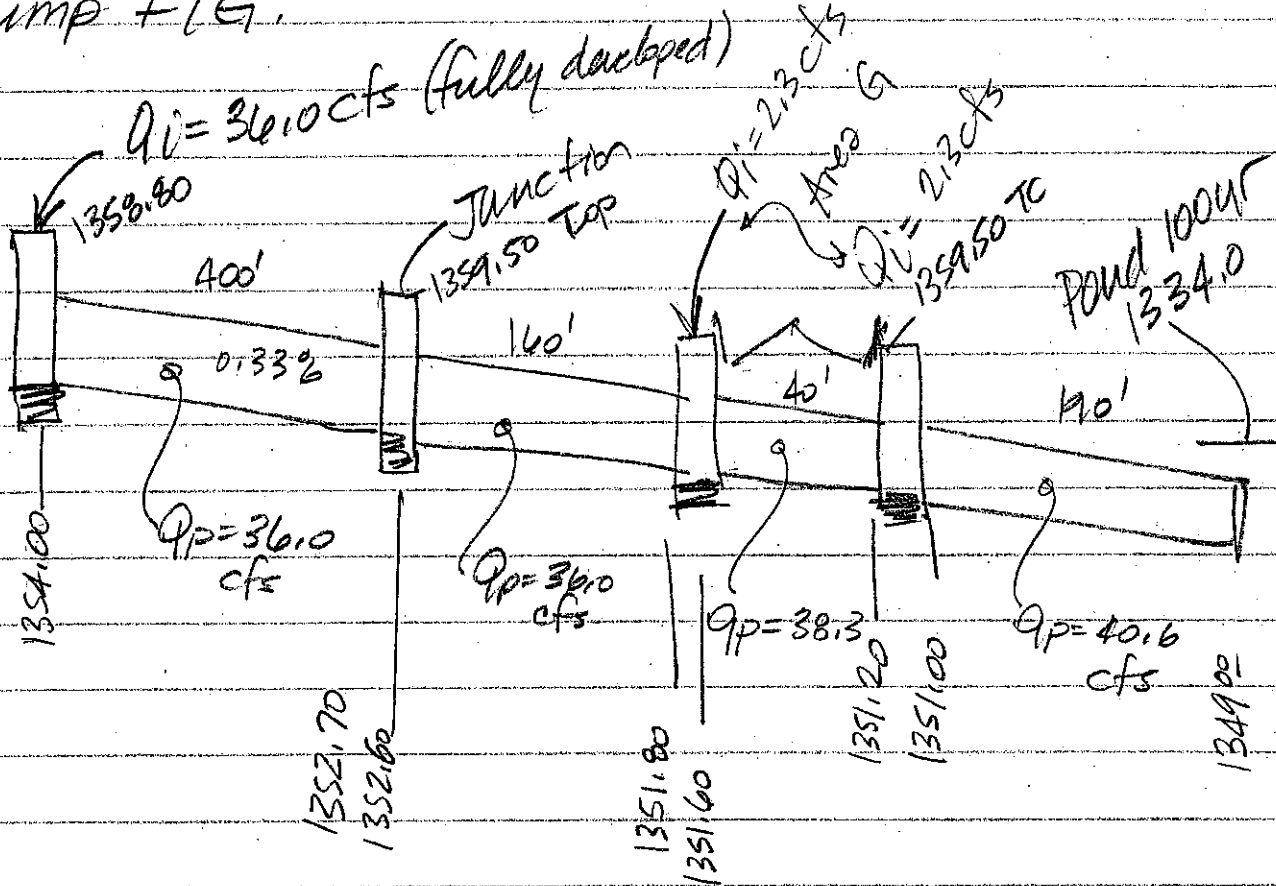 ump + / G.
Qi = 36.0 cfs (fully developed)
1358.80
Junction
1359.50 Top
Qi = 2.3 cfs
Area G
Qi = 2.3 cfs
1359.50 TC
Pond 100yr
1334.0
400'
0.33%
160'
40'
190'
1354.00
Qp = 36.0
cfs
Qp = 36.0
cfs
Qp = 38.3
Qp = 40.6
cfs
1352.70
1352.60
1351.80
1351.60
1351.20
1351.00
1349.00